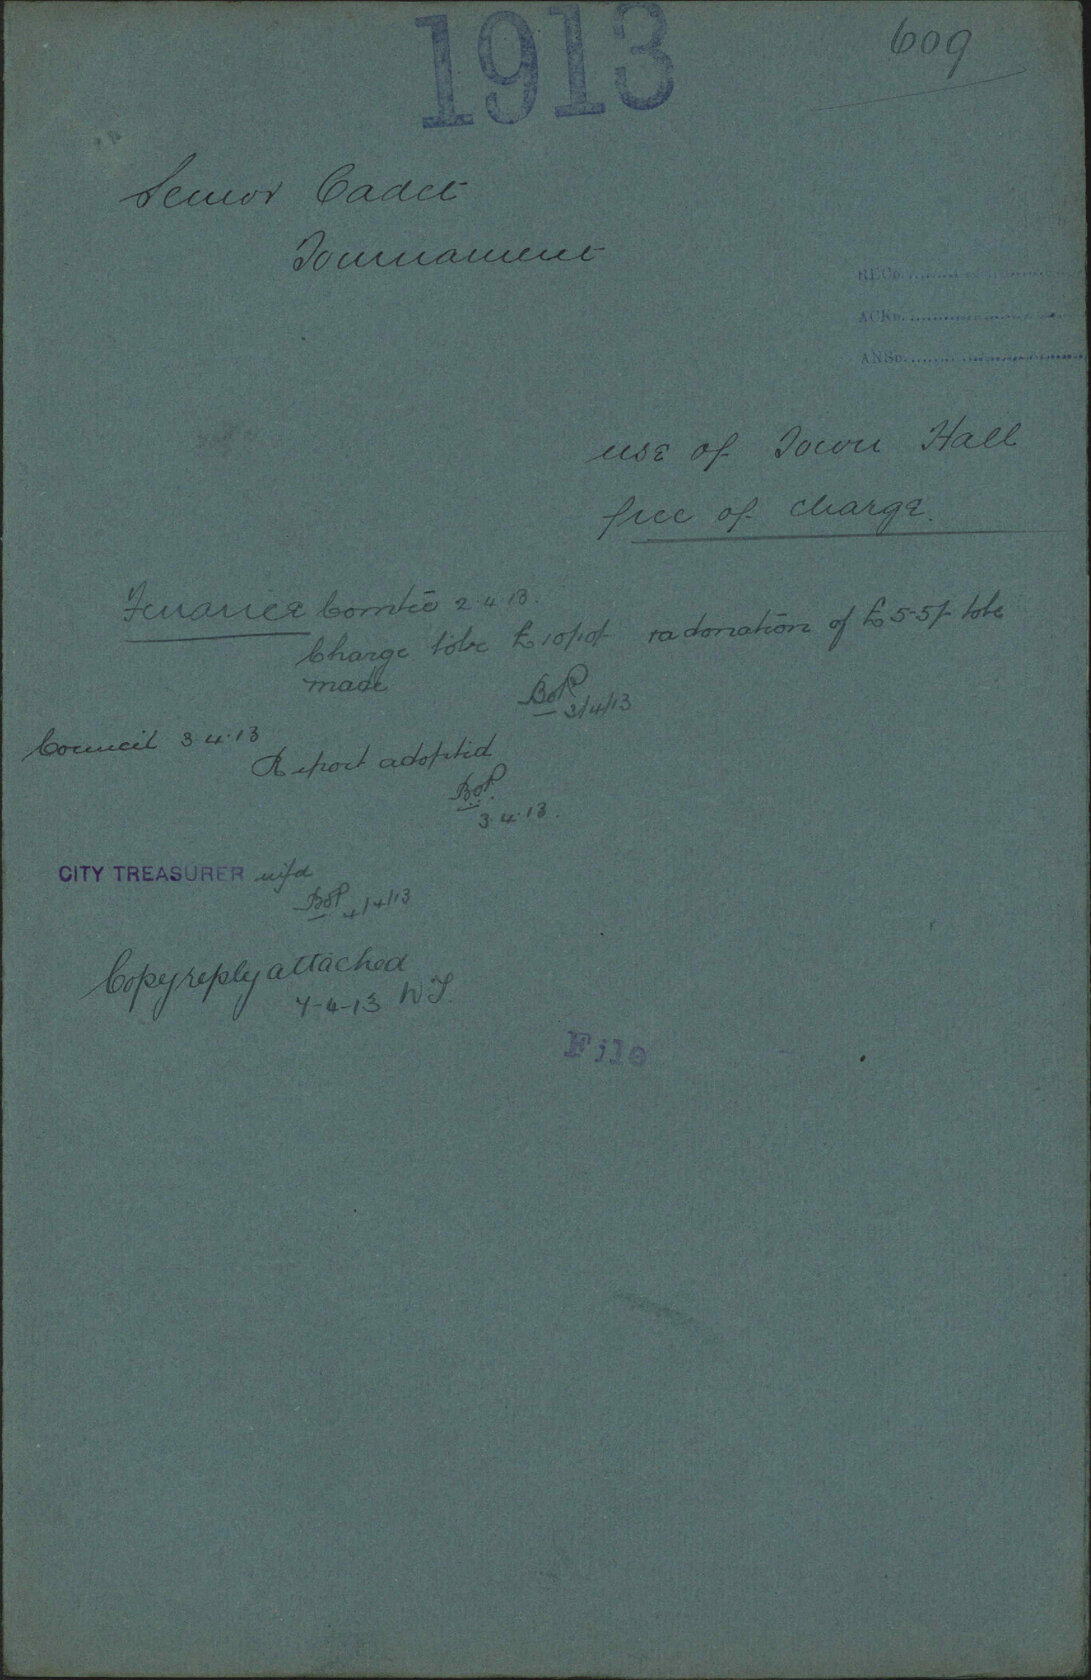 1913
609
Senior Cadet
Tournament
RECD.
ACKD.
ANSD.
use of Town Hall
free of charge.
Finance Comtee 2.4.13.
Charge to be £10/10/- a donation of £5-5/- to be
made
3/4/13
Council 3.4.13
Report adopted
3.4.13.
CITY TREASURER
4/4/13
Copy reply attached
7-4-13
File